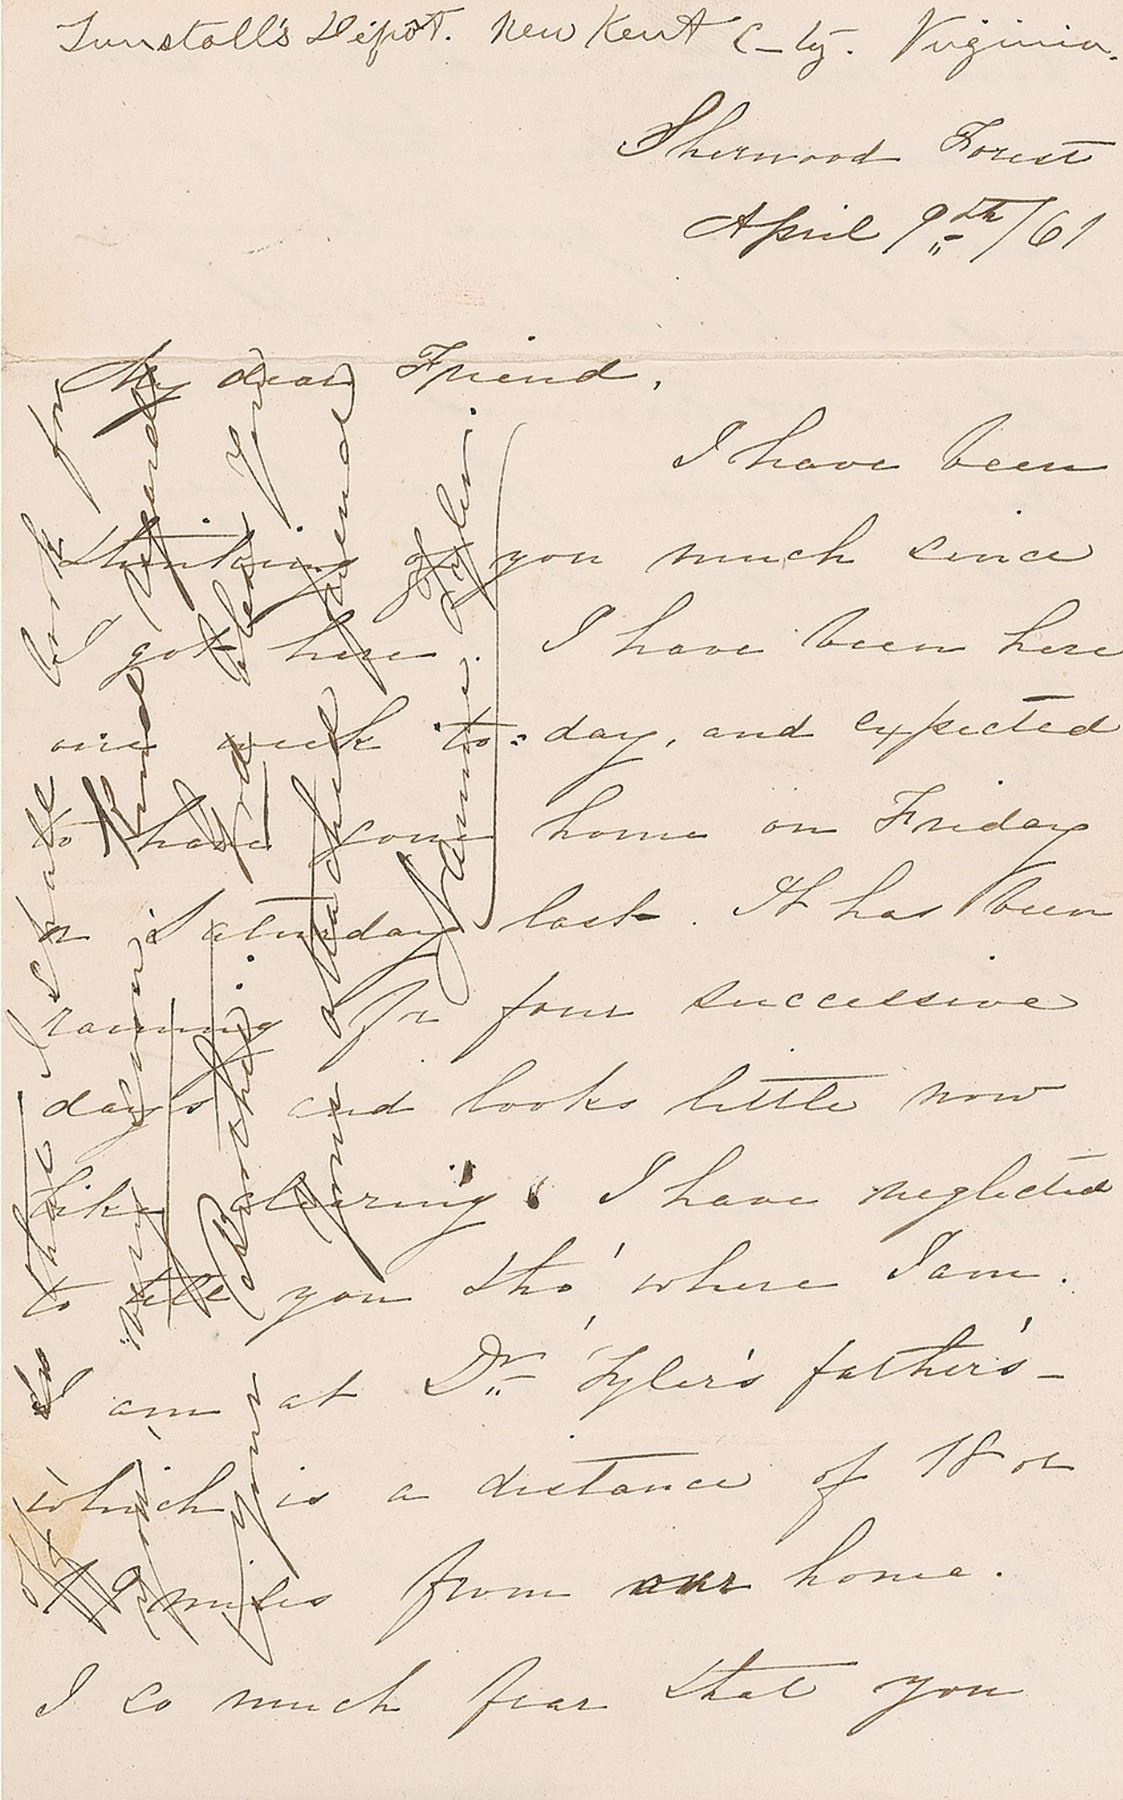 Tunstall's Depot. New Kent C-ty. Virginia.
Sherwood Forest
April 9th/61
My dear Friend,
I have been
thinking of you much since
I got here. I have been here
one week to-day, and expected
to have gone home on Friday
or Saturday last. It has been
raining for four successive
days and looks little now
like clearing. I have neglected
to tell you tho' where I am.
I am at Dr. Tyler's father's -
which is a distance of 18 or
19 miles from our home.
I so much fear that you
I shall look for
very soon. Kind regards
to your Brother. God bless you
Your attached friend
Tyler.